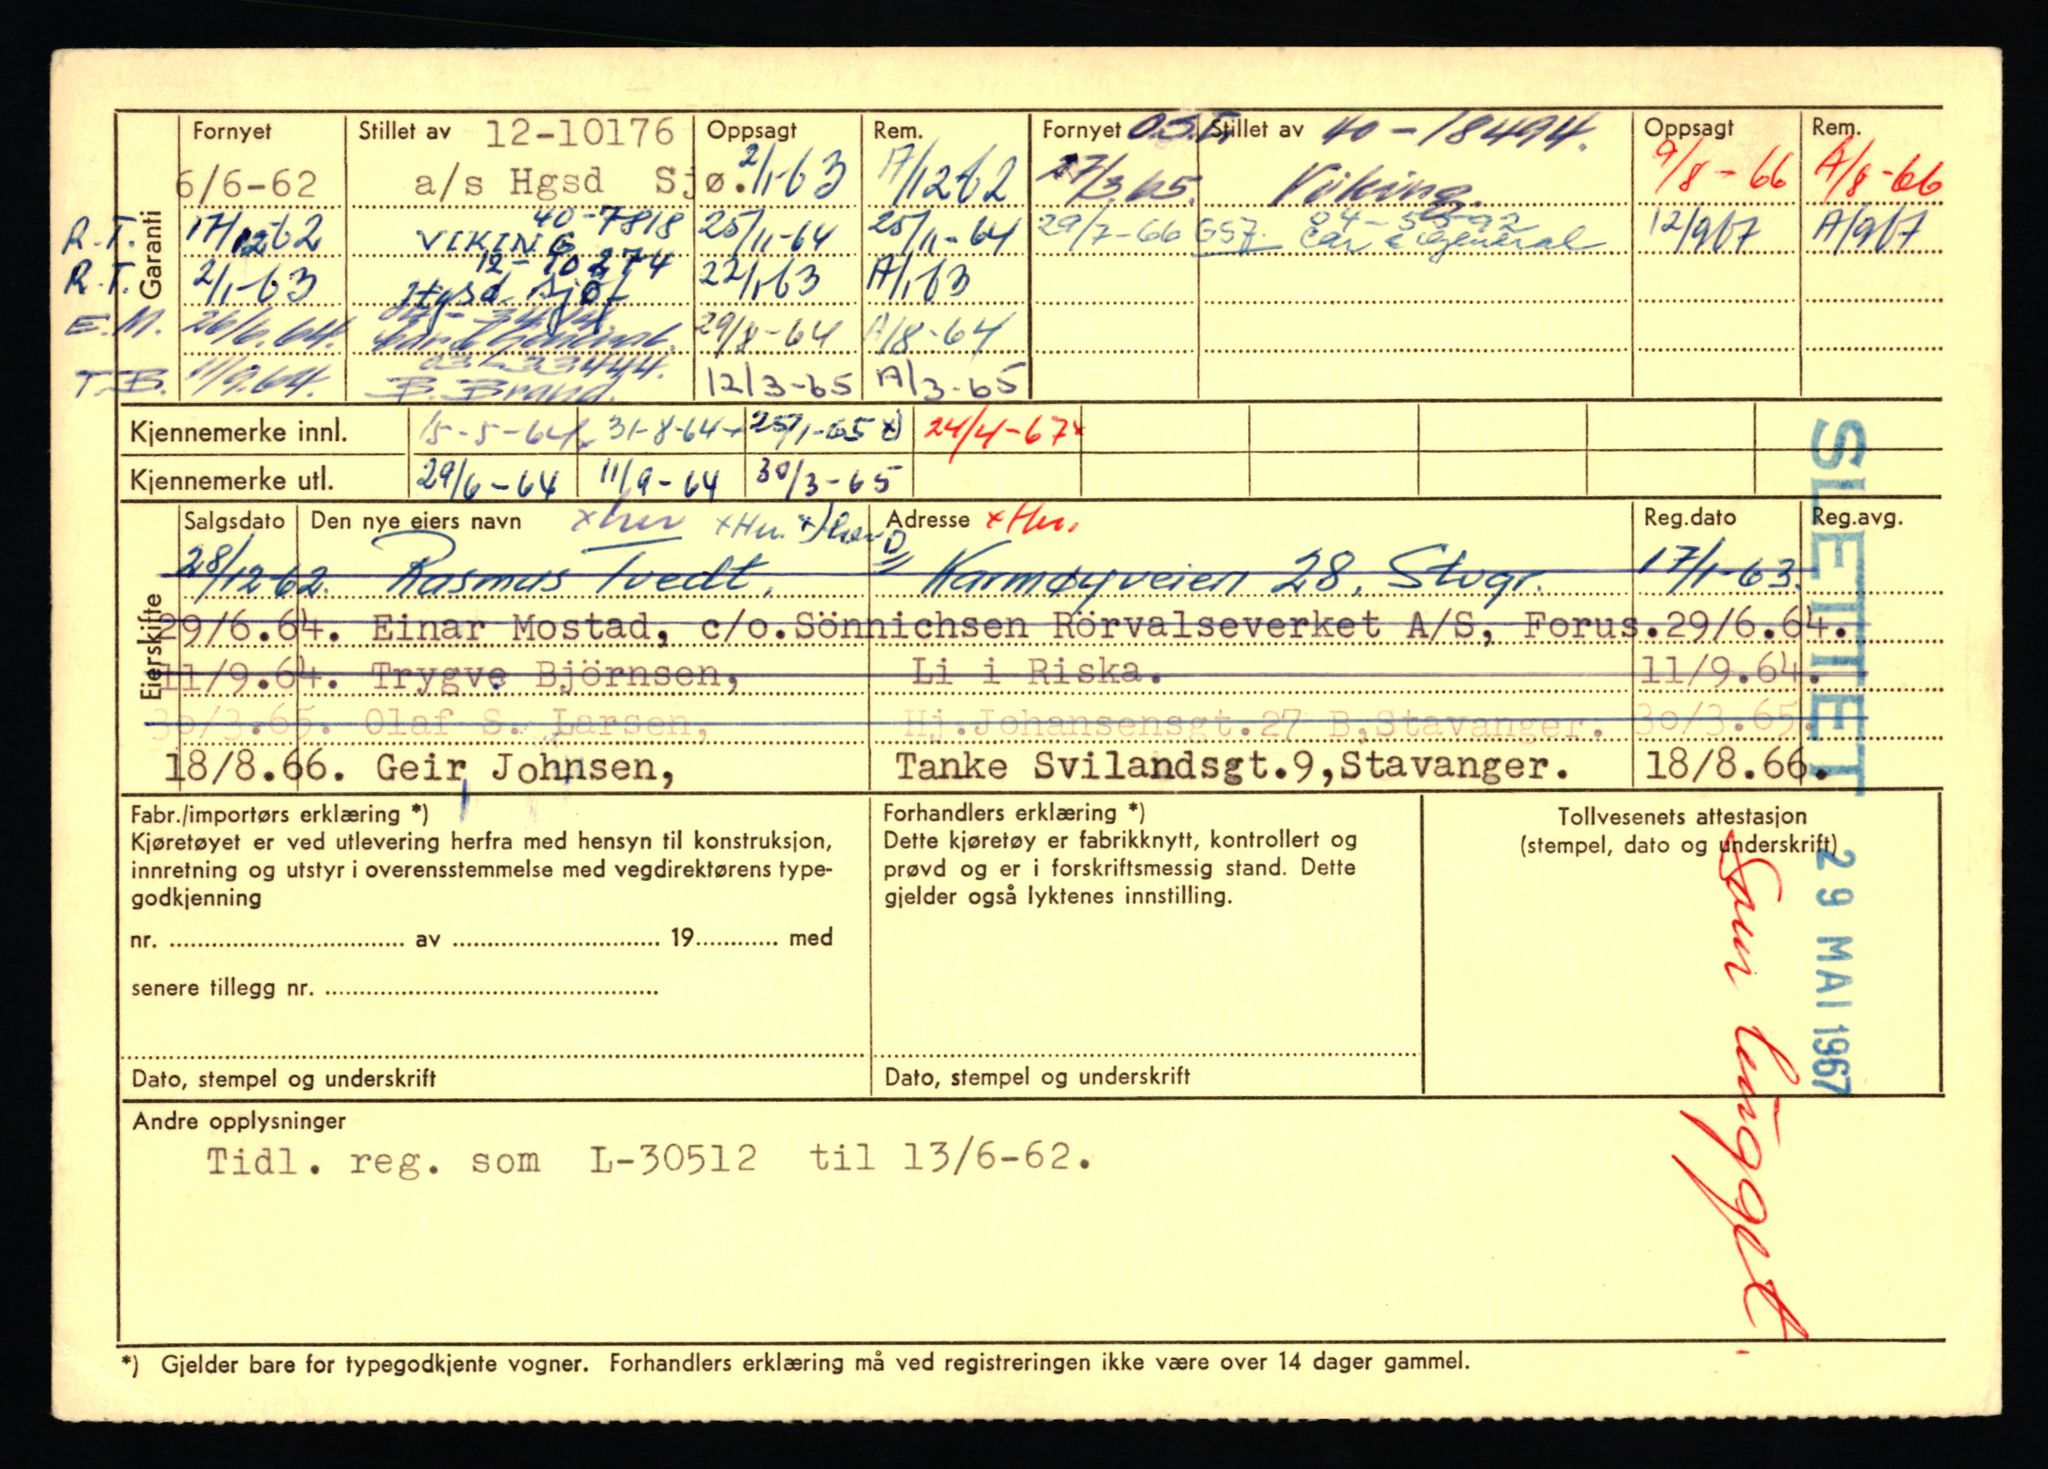 Fornyet Stillet av 12-10176 Oppsagt Rem. Fornyet Stillet av 40-18494. Oppsagt Rem.
6/6-62 a/s Hgsd Sjø. 2/1-63 A/12-62 27/3.65. Viking. 9/8-66 A/8-66
Garanti
R.T. 17/12-62 40-7818 VIKING 25/11-64 25/11-64 29/7-66 GSJ. Car & General 12/9 67 A/9 67
R.T. 2/1-63 12-10274 Hgsd Sjøf 22/1-63 A/1-63
E.M. 26/6.64. Car & General. 29/8-64 A/8-64
T.B. 11/9.64. 03-33444. B. Brand. 12/3-65 A/3-65
Kjennemerke innl. 15-5-64x 31-8-64+ 25/1-65 x) 24/4-67x
Kjennemerke utl. 29/6-64 11/9-64 30/3-65
SLETTET
Eierskifte
Salgsdato Den nye eiers navn xhu xHu. Adresse xHu. Reg.dato Reg.avg.
28/12-62. Rasmus Tvedt, Karmøyveien 28, Stvgr. 17/1-63.
29/6.64. Einar Mostad, c/o.Sönnichsen Rörvalseverket A/S, Forus.29/6.64.
11/9.64. Trygve Björnsen, Li i Riska. 11/9.64.
30/3.65. Olaf S. Larsen, Hj.Johansensgt.27 B,Stavanger. 30/3.65.
18/8.66. Geir Johnsen, Tanke Svilandsgt.9,Stavanger. 18/8.66.
Fabr./importørs erklæring *)
Kjøretøyet er ved utlevering herfra med hensyn til konstruksjon,
innretning og utstyr i overensstemmelse med vegdirektørens type-
godkjenning
nr. .................... av .................... 19............ med
senere tillegg nr. ....................
Dato, stempel og underskrift
Forhandlers erklæring *)
Dette kjøretøy er fabrikknytt, kontrollert og
prøvd og er i forskriftsmessig stand. Dette
gjelder også lyktenes innstilling.
Dato, stempel og underskrift
Tollvesenets attestasjon
(stempel, dato og underskrift)
29 MAI 1967
Andre opplysninger
Tidl. reg. som L-30512 til 13/6-62.
*) Gjelder bare for typegodkjente vogner. Forhandlers erklæring må ved registreringen ikke være over 14 dager gammel.